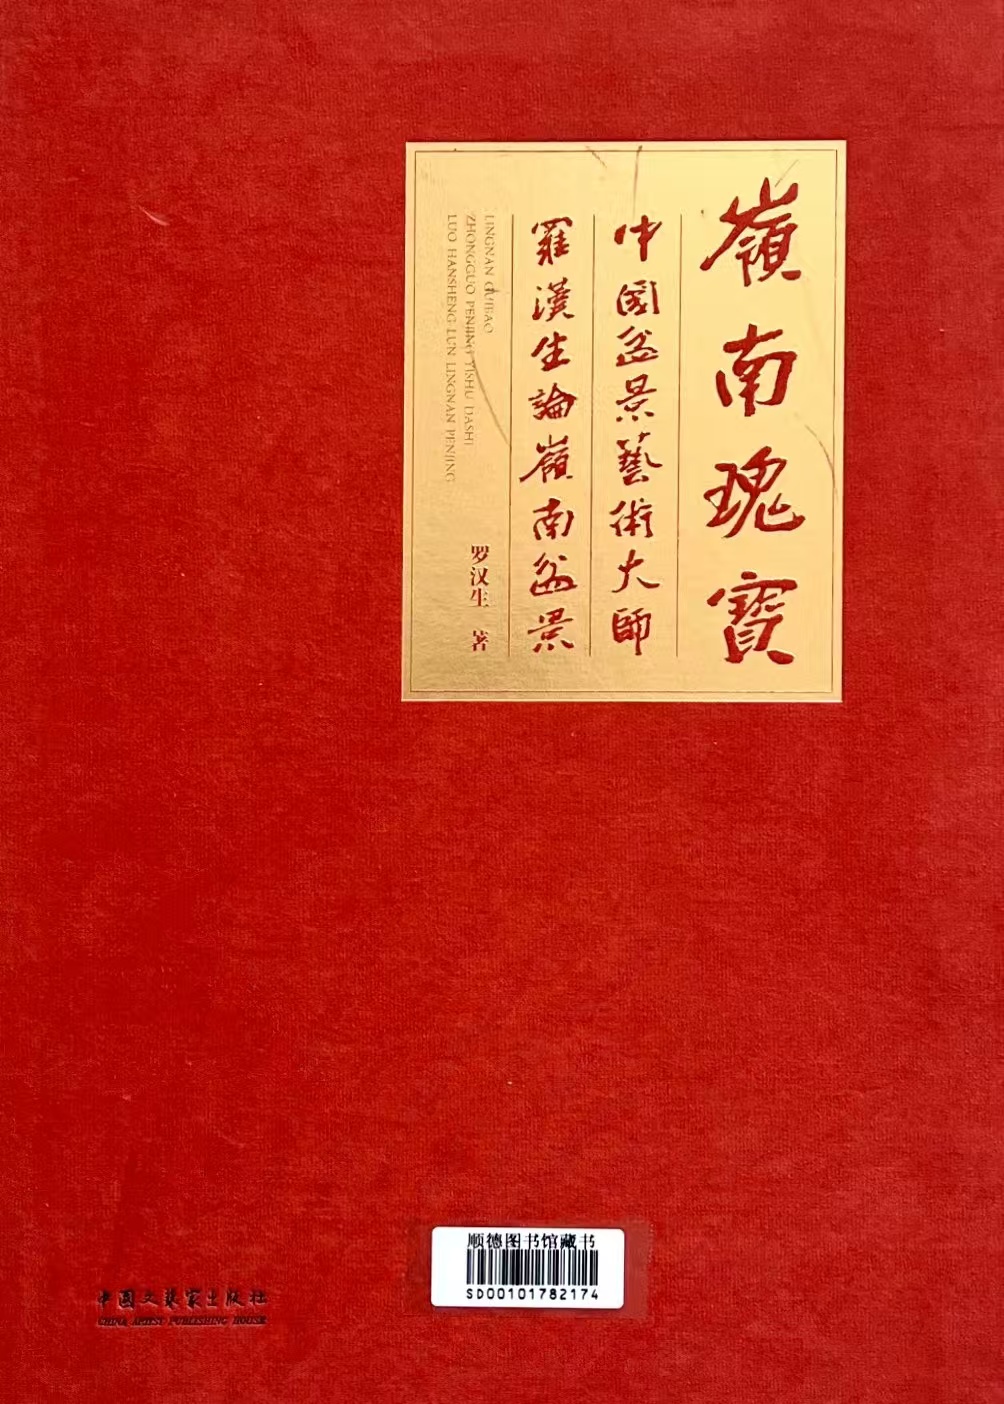 嶺南瑰寶
中國盆景藝術大師
羅漢生論嶺南盆景
LINGNAN GUIBAO
ZHONGGUO PENJING YISHU DASHI
LUO HANSHENG LUN LINGNAN PENJING
罗汉生 著
顺德图书馆藏书
SD00101782174
中国文艺家出版社
CHINA ARTIST PUBLISHING HOUSE